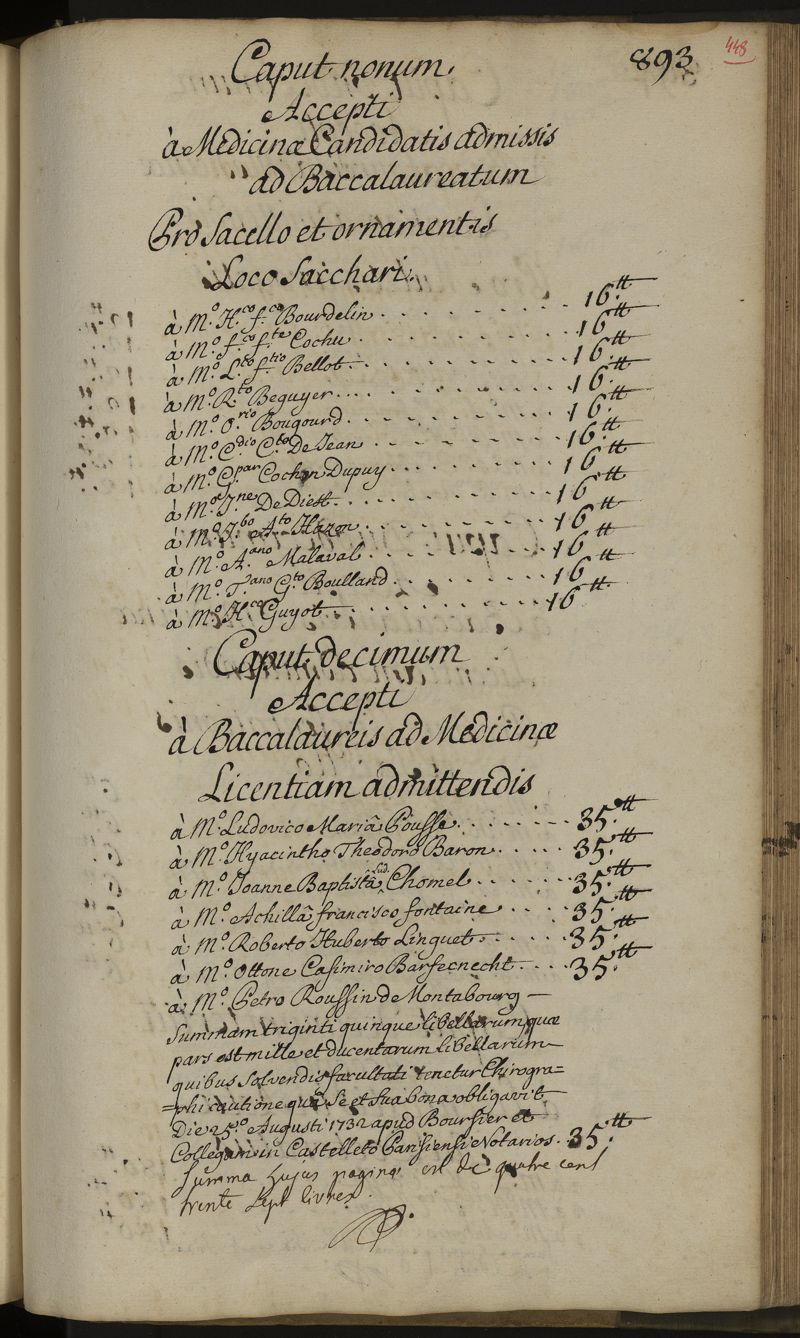 893
448
Caput nonum
Accepti
à Medicinæ Candidatis admissis
ad Baccalaureatum
Pro Sacello et ornamentis
Loco Sacchari
à M.º H.co f.co Bourdelin . . . . . . . . 16.tt
à M.º f.co f.te Cochu . . . . . . . . 16.tt
à M.º L.to f.tio Bellot . . . . . . . . 16.tt
à M.º R.to Beguyer . . . . . . . . 16.tt
à M.º O.rio Bougourd . . . . . . . . 16.tt
à M.º C.dio C.to De Jean . . . . . . . . 16.tt
à M.º G.par Cochon Dupuy . . . . . . . . 16.tt
à M.º J.ne De Diest . . . . . . . . 16.tt
à M.º J.bo A.to Hazon . . . . . . . . 16.tt
à M.º A.ano Malaval . . . . . . . . 16.tt
à M.º T.ano G.to Boulland . . . . . . . . 16.tt
à M.º H.co Guyot . . . . . . . . 16.tt
Caput decimum
Accepti
à Baccalaureis ad Medicinæ
Licentiam admittendis
à M.º Ludovico Mariâ Pousse . . . . . . . 35.tt
à M.º Hyacintho Theodoro Baron . . . . . 35.tt
à M.º Joanne Baptistâ Lud. Chomel . . . . . . 35.tt
à M.º Achillâ francisco fontaine . . . . 35.tt
à M.º Roberto Huberto Linguet . . . . . . 35.tt
à M.º Ottone Casimiro Barfecnecht . . . . 35.tt
à M.º Petro Roussin de Montabourg —
Summam triginti quinque libellarum, quæ
pars est mille et ducentarum libellarum
quibus solvendis facultati tenetur Chirogra=
=phi cautione quâ se et sua bona obligavit
Die 25.º Augusti 1732 apud Boursier et
Collegam in Castelleto Parisiensi Notarios . 35.tt
Summa hujus paginæ est de quatre cent
trente sept livres.